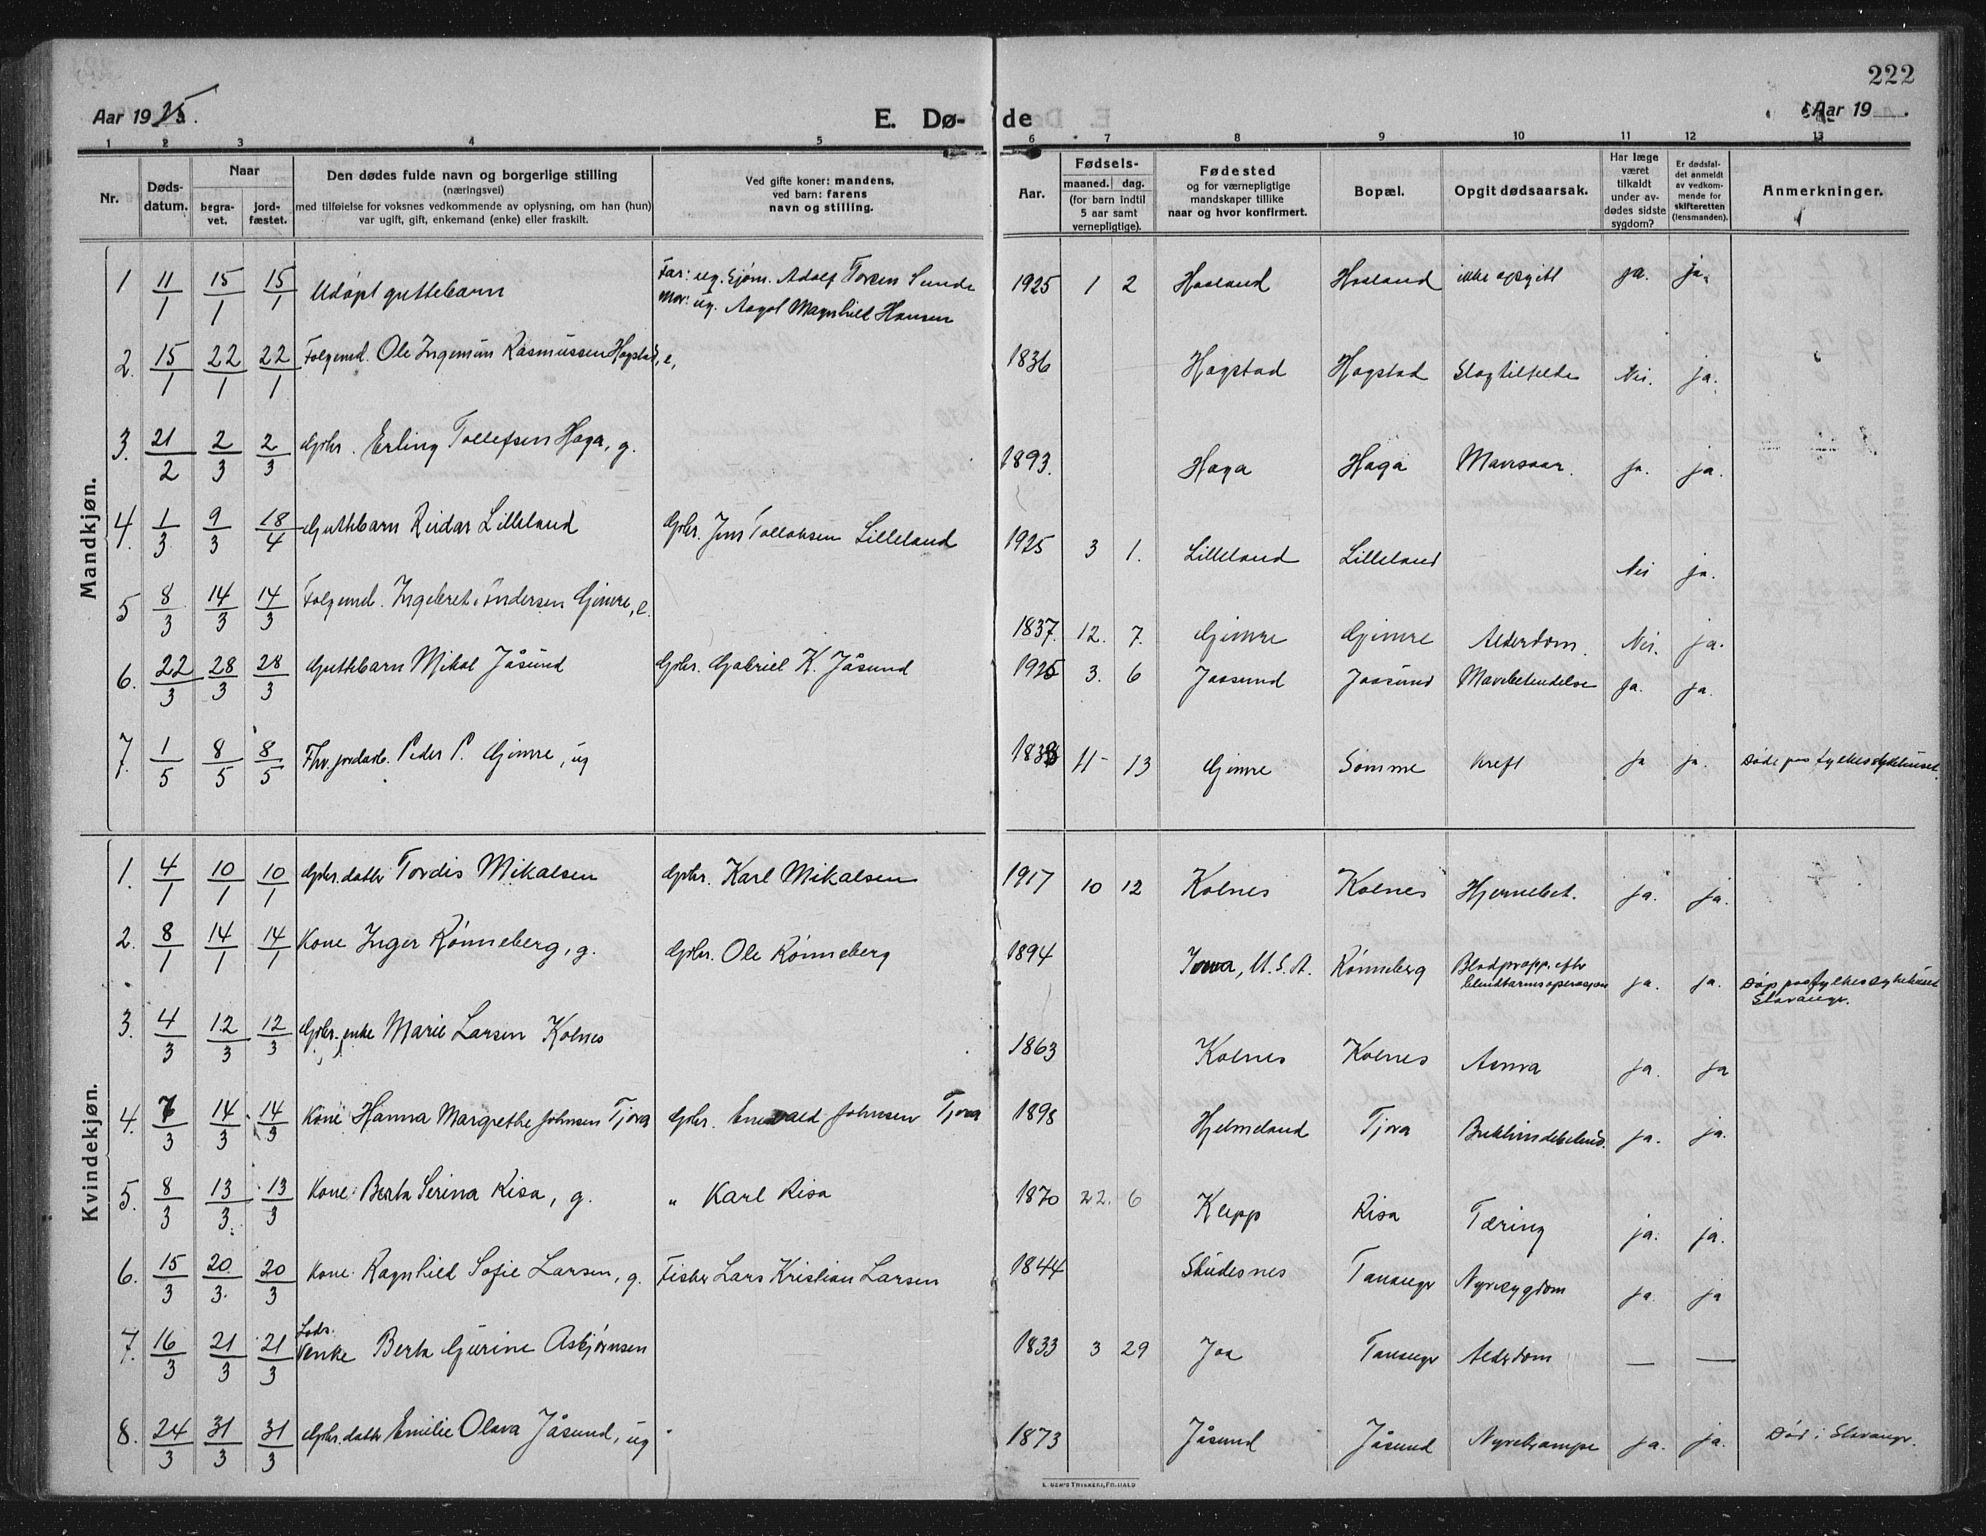 222
Aar 1925. E. Dø- de Aar 19
1 2 3 4 5 6 7 8 9 10 11 12 13
Nr. Døds-datum. Naar begra-vet. jord-fæstet. Den dødes fulde navn og borgerlige stilling (næringsvei) med tilføielse for voksnes vedkommende av oplysning, om han (hun) var ugift, gift, enkemand (enke) eller fraskilt. Ved gifte koner: mandens, ved barn: farens navn og stilling. Aar. Fødsels- maaned. dag. (for barn indtil 5 aar samt vernepligtige). Fødested og for værnepligtige mandskaper tillike naar og hvor konfirmert. Bopæl. Opgit dødsaarsak. Har læge været tilkaldt under av-dødes sidste sygdom? Er dødsfal-det anmeldt av vedkom-mende for skifteretten (lensmanden). Anmerkninger.
Mandkjøn.
1 11/1 15/1 15/1 Udøpt guttebarn Far: ug. Sjøm. Adolf Torsen Sunde
Mor: ug. Aagot Magnhild Hansen 1925 1 2 Haaland Haaland ikke opgitt ja. ja.
2. 15/1 22/1 22/1 Folgemd. Ole Ingemun Rasmussen Hogstad, e, 1836 Hogstad Hogstad Slagtilfelde Nei. ja.
3. 21/2 2/3 2/3 Gbr. Erling Tollefsen Haga, g. 1893. Haga Haga Mavesaar. ja. ja.
4. 1/3 9/3 18/4 Guttebarn Reidar Lilleland Gbr. Jens Lilleland 1925 3 1. Lilleland Lilleland Nei ja.
5 8/3 14/3 14/3 Folgemd. Ingebret Andersen Gimre, e. 1837. 12. 7. Gimre Gimre Alderdom. Nei. ja.
6. 22/3 28/3 28/3 Guttebarn Mikal Jåsund Gbr. Gabriel K. Jåsund 1925 3. 6 Jaasund Jaasund Mavebetendelse ja. ja.
7. 1/5 8/5 8/5 Fhv. jordarb. Peder P. Gimre, ug 11- 13 Gimre Sømme Kreft ja ja. Døde paa fylkessykehuset.
Kvindekjøn.
1. 4/1 10/1 10/1 Gbr. datter Tordis Mikalsen Gbr. Karl Mikalsen 1917 10 12 Kolnes Kolnes Hjernebet. ja. ja.
2. 8/1 14/1 14/1 Kone Inger Rønneberg, g. Gbr. Ole Rønneberg 1894 Iowa, U.S.A. Rønneberg Blodpropp. efter
blindtarmsoperasjon ja. ja. Døde paa fylkessykehuset
Stavanger.
3. 4/3 12/3 12/3 Gbr. enke Marie Larsen Kolnes 1863 Kolnes Kolnes Asma ja. ja
4. 7/3 14/3 14/3 Kone Hanna Margrethe Johnsen Tjora Gbr. Johnsen Tjora 1898 Hjelmeland Tjora ja. ja.
5. 8/3 13/3 13/3 Kone Berta Serina Risa, g. " Karl Risa 1870 22. 6 Klepp Risa Tæring ja. ja.
6. 15/3 20/3 20/3 Kone Ragnhild Sofie Larsen, g. Fisker Lars Kristian Larsen 1844 Skudesnes Tananger Nyresygdom ja. ja
7. 16/3 21/3 21/3 Lods. enke Berta Gurine Asbjørnsen 1833 3 29 Joa Tananger Alderdom — —
8. 24/3 31/3 31/3 Gbr. datter Emilie Olava Jåsund, ug 1873 Jåsund Jåsund Nyrekrampe ja. ja. Død i Stavanger.